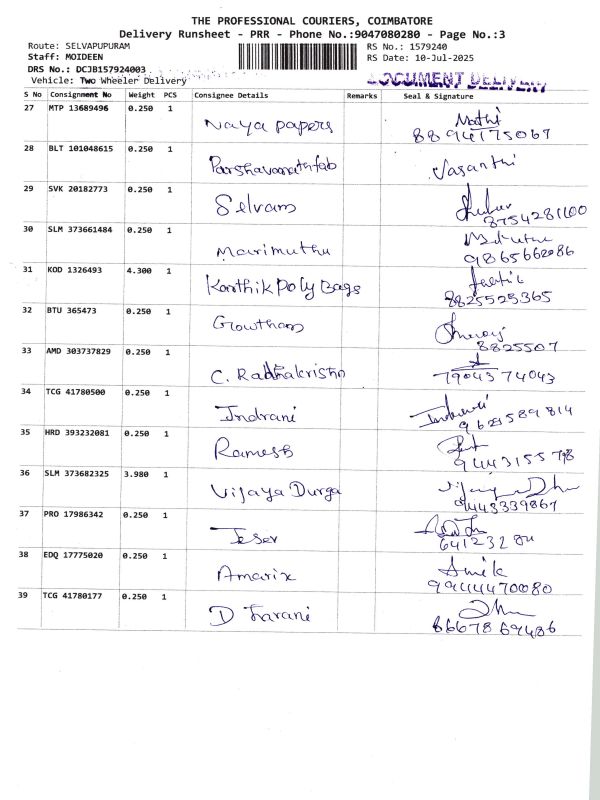 THE PROFESSIONAL COURIERS, COIMBATORE
Delivery Runsheet - PRR - Phone No.:9047080280 - Page No.:3
Route: SELVAPUPURAM
RS No.: 1579240
Staff: MOIDEEN
RS Date: 10-Jul-2025
DRS No.: DCJB157924003
Vehicle: Two Wheeler Delivery
DOCUMENT DELIVERY
S No Consignment No Weight PCS Consignee Details Remarks Seal & Signature
27 MTP 13689496 0.250 1 Naya papers Mathi
88944175067
28 BLT 101048615 0.250 1 Parshavanathfab Vasanthi
29 SVK 20182773 0.250 1 Selvam
8754281100
30 SLM 373661484 0.250 1 Marimuthu
9865662086
31 KOD 1326493 4.300 1 Karthik Poly Bags
8825525365
32 BTU 365473 0.250 1 Gowtham
8825507
33 AMD 303737829 0.250 1 C. Radhakrishn
79043 74043
34 TCG 41780500 0.250 1 Indrani
9629589814
35 HRD 393232081 0.250 1 Ramesh
9443155798
36 SLM 373682325 3.980 1 Vijaya Durga
9443339867
37 PRO 17986342 0.250 1
38 EDQ 17775020 0.250 1 Amarix
39 TCG 41780177 0.250 1 Dharani
8667869486